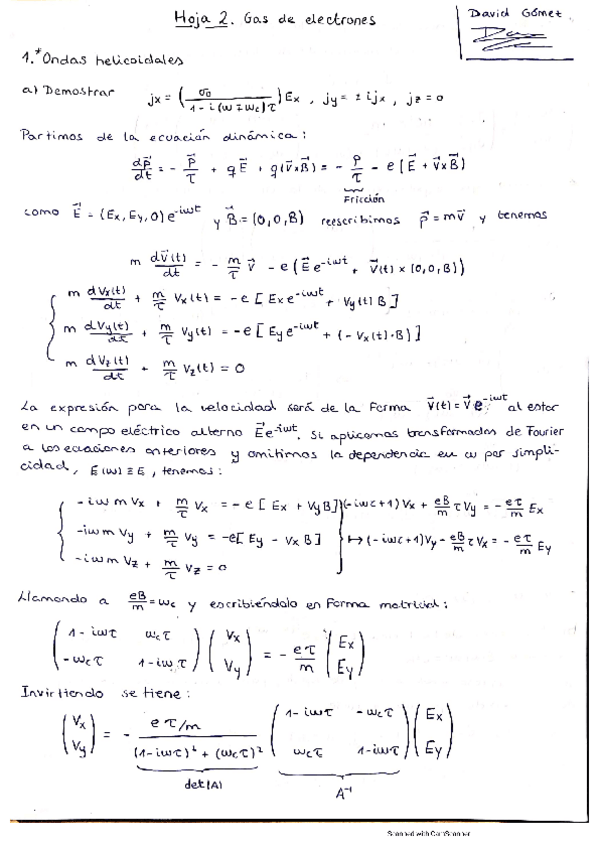 Hoja 2. Gas de electrones
David Gómez
1.* Ondas helicoidales
a) Demostrar jx = (σ0 / (1 - i(ω ∓ ωc)τ)) Ex , jy = ± i jx , jz = 0
Partimos de la ecuación dinámica:
dp⃗/dt = - p⃗/τ + qE⃗ + q(v⃗×B⃗) = - p⃗/τ - e[E⃗ + v⃗×B⃗]
Fricción
como E⃗ = (Ex, Ey, 0) e^-iωt y B⃗ = (0,0,B) reescribimos p⃗ = mv⃗ y tenemos
m dv⃗(t)/dt = - m/τ v⃗ - e(E⃗ e^-iωt + v⃗(t) × (0,0,B))
m dVx(t)/dt + m/τ Vx(t) = -e [Ex e^-iωt + Vy(t) B]
m dVy(t)/dt + m/τ Vy(t) = -e [Ey e^-iωt + (-Vx(t)·B)]
m dVz(t)/dt + m/τ Vz(t) = 0
La expresión para la velocidad será de la forma v⃗(t) = v⃗ e^-iωt al estar
en un campo eléctrico alterno E⃗e^-iωt. Si aplicamos transformadas de Fourier
a las ecuaciones anteriores y omitimos la dependencia en ω por simpli-
cidad, E(ω) ≡ E, tenemos:
-iωm Vx + m/τ Vx = -e [Ex + VyB] (-iωτ+1) Vx + eB/m τ Vy = - eτ/m Ex
-iωm Vy + m/τ Vy = -e[Ey - VxB] ↦ (-iωτ+1) Vy - eB/m τ Vx = - eτ/m Ey
-iωm Vz + m/τ Vz = 0
Llamando a eB/m = ωc y escribiéndolo en forma matricial:
(1-iωτ ωcτ) (Vx) = - eτ/m (Ex)
(-ωcτ 1-iωτ) (Vy) (Ey)
Invirtiendo se tiene:
(Vx) = - eτ/m (1-iωτ -ωcτ) (Ex)
(Vy) (1-iωτ)² + (ωcτ)² (ωcτ 1-iωτ) (Ey)
det(A) A⁻¹
Scanned with CamScanner